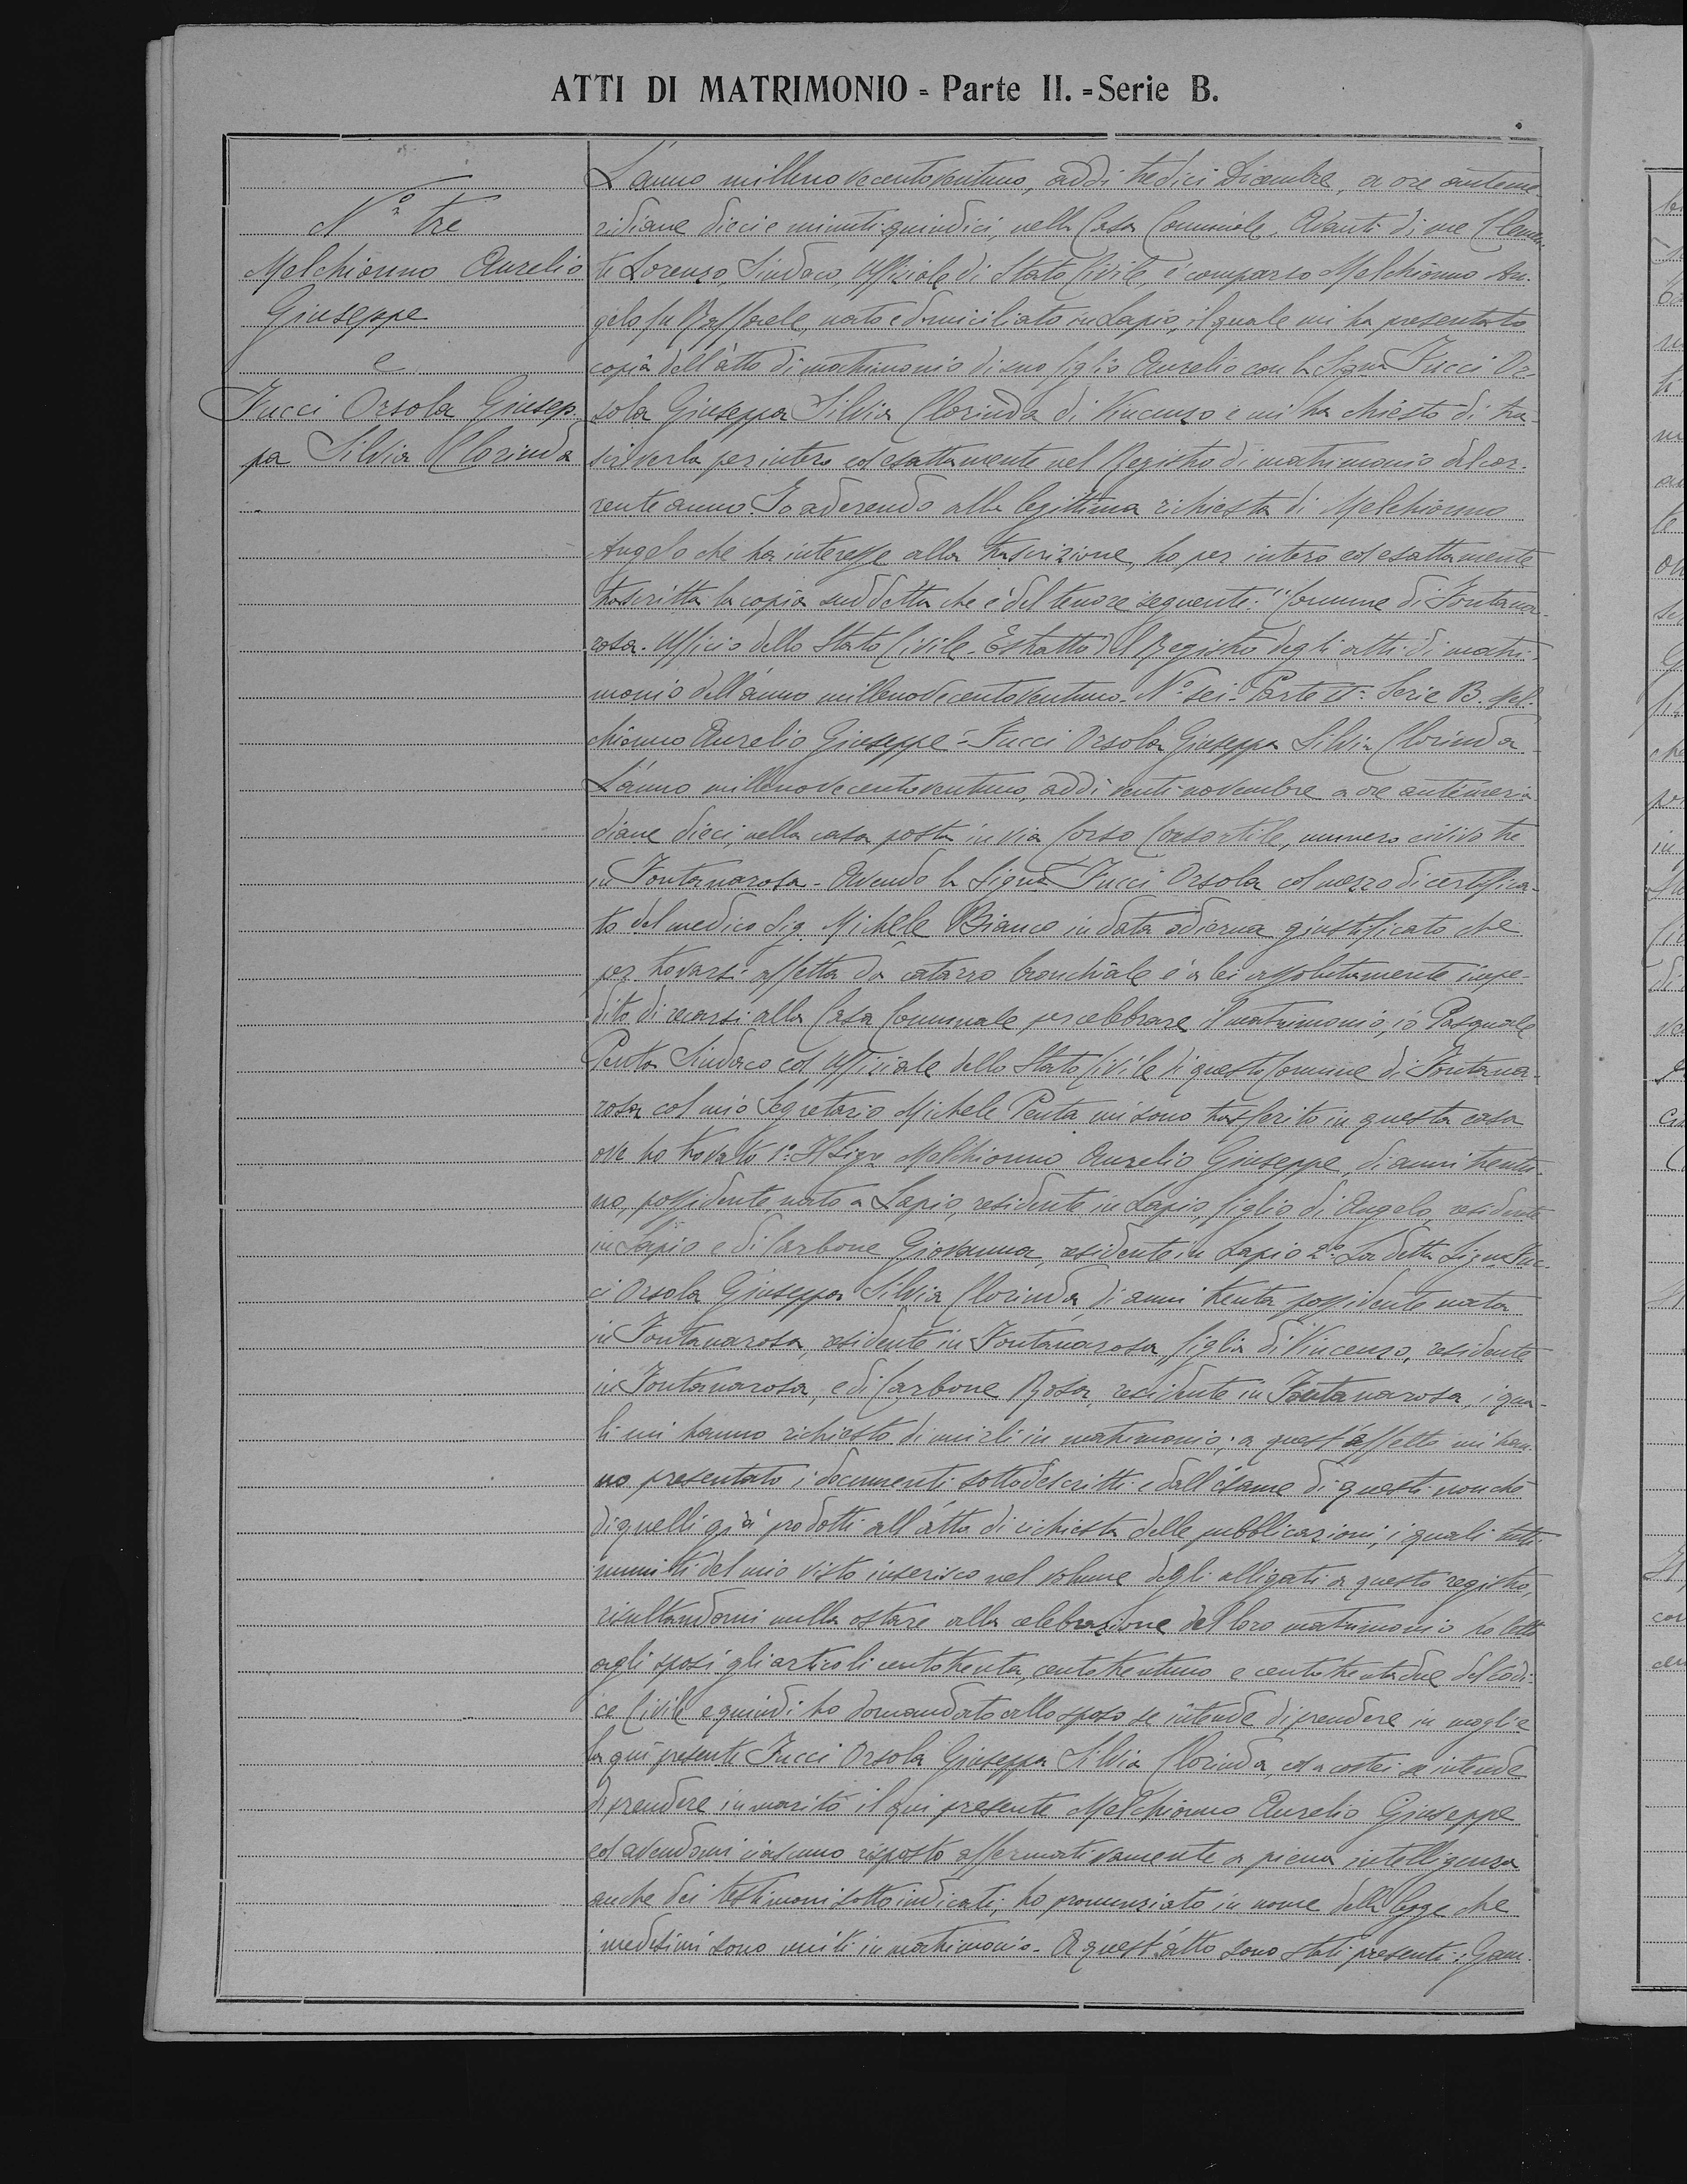 ATTI DI MATRIMONIO - Parte II. - Serie B.
N.° tre
Melchionno Aurelio
Giuseppe
e
Fucci Orsola Giusep-
pa Silvia Clorinda
L'anno millenovecentoventuno, addì tredici Dicembre, a ore anteme-
ridiane dieci e minuti quindici, nella Casa Comunale. Avanti di me Clemen-
te Lorenzo, Sindaco, Uffiziale di Stato Civile, è comparso Melchionno An-
gelo fu Raffaele, nato e domiciliato in Lapio, il quale mi ha presentato
copia dell'atto di matrimonio di suo figlio Aurelio con la Signa Fucci Or-
sola Giuseppa Silvia Clorinda di Vincenzo e mi ha chiesto di tra-
scriverla per intero ed esattamente nel Registro di matrimonio del cor-
rente anno. Io aderendo alla legittima richiesta di Melchionno
Angelo che ha interesse alla trascrizione, ho per intero ed esattamente
trascritta la copia suddetta che è del tenore seguente: "Comune di Fontana-
rosa. Ufficio dello Stato Civile. Estratto del Registro degli atti di matri-
monio dell'anno millenovecentoventuno. N° sei - Parte IIa Serie B. Mel-
chionno Aurelio Giuseppe = Fucci Orsola Giuseppa Silvia Clorinda -
L'anno millenovecentoventuno, addì venti novembre a ore antimeri-
diane dieci, nella casa posta in via Corso, numero civivo tre
in Fontanarosa - Avendo la Signa Fucci Orsola col mezzo di certifica-
to del medico Sig. Michele Bianco in data odierna giustificato che
per trovarsi affetta da catarro bronchiale è a lei assolutamente impe-
dito di recarsi alla Casa Comunale per celebrare il matrimonio, io Pasquale
Penta Sindaco ed Uffiziale dello Stato Civile di questo Comune di Fontana-
rosa col mio Segretario Michele Penta mi sono trasferito in questa casa
ove ho trovato 1°: Il Sigr Melchionno Aurelio Giuseppe, di anni trentu-
no, possidente, nato a Lapio, residente in Lapio, figlio di Angelo, residente
in Lapio e di Carbone Giovanna, residente in Lapio 2°: La detta Signa Fuc-
ci Orsola Giuseppa Silvia Clorinda, di anni trenta possidente nata
in Fontanarosa, residente in Fontanarosa, figlia di Vincenzo, residente
in Fontanarosa, e di Carbone Rosa, residente in Fontanarosa, i qua-
li mi hanno richiesto di unirli in matrimonio; a quest'effetto mi han-
no presentato i documenti sottodescritti e dall'esame di questi nonché
di quelli già prodotti all'atto di richiesta delle pubblicazioni, i quali tutti
muniti del mio visto inserisco nel volume degli alligati a questo registro,
risultandomi nulla ostare alla celebrazione del loro matrimonio ho letto
agli sposi gli articoli centotrenta, centotrentuno e centotrentadue del Codi-
ce Civile e quindi ho domandato allo sposo se intende di prendere in moglie
la qui presente Fucci Orsola Giuseppa Silvia Clorinda, ed a costei se intende
di prendere in marito il qui presente Melchionno Aurelio Giuseppe
ed avendomi ciascuno risposto affermativamente a piena intelligenza
anche dei testimoni sotto indicati, ho pronunziato in nome della legge che
i medesimi sono uniti in matrimonio. A quest'atto sono stati presenti: Gam-